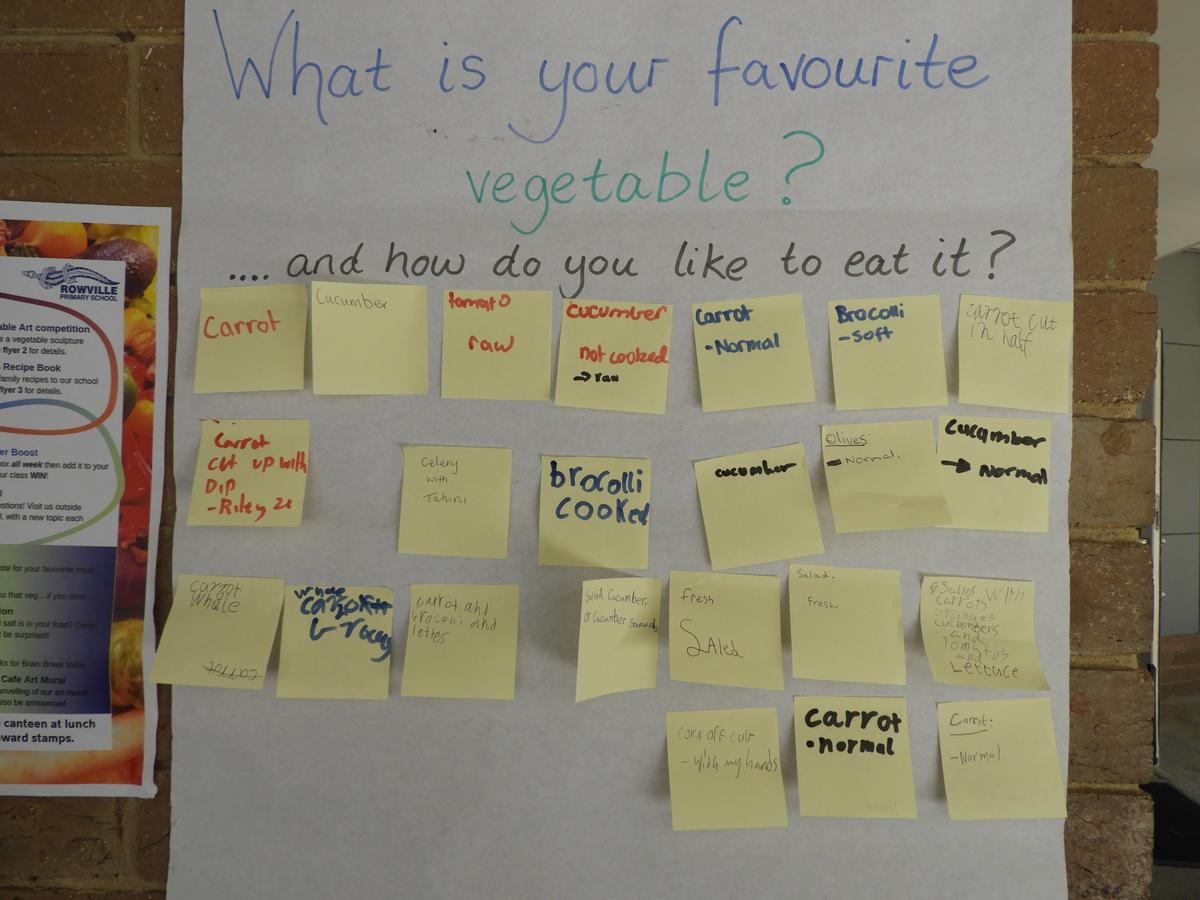 What is your favourite
vegetable?
.... and how do you like to eat it?
ROWVILLE
PRIMARY SCHOOL
able Art competition
e a vegetable sculpture
flyer 2 for details.
Recipe Book
family recipes to our school
flyer 3 for details.
er Boost
box all week then add it to your
ur class WIN!
estions! Visit us outside
with a new topic each
ote for your favourite
ss that veg...if you dare!
salt is in your food?
t be surprised!
ks for Brain Break today.
Cafe Art Mural
unveiling of our art mural
also be announced.
canteen at lunch
ward stamps.
Carrot
Cucumber
tomato
raw
cucumber
not cooked
→ raw
Carrot
-Normal
Brocolli
-Soft
carrot cut
in half
Carrot
cut up with
Dip
-Riley
Celery
with
Tahini
brocolli
cooked
cucumber
Olives:
- Normal.
cucumber
→ Normal
carrot
Whale
carrot and
broccoli and
lettes
Sliced Cucumber
or Cucumber
fresh
SALed
Salad.
Fresh.
Salid with
carrots
oranges
cucumbers
and
Tomatos
and
Lettuce
corn off cob
- With my hands
carrot
• normal
Carrot:
-Normal